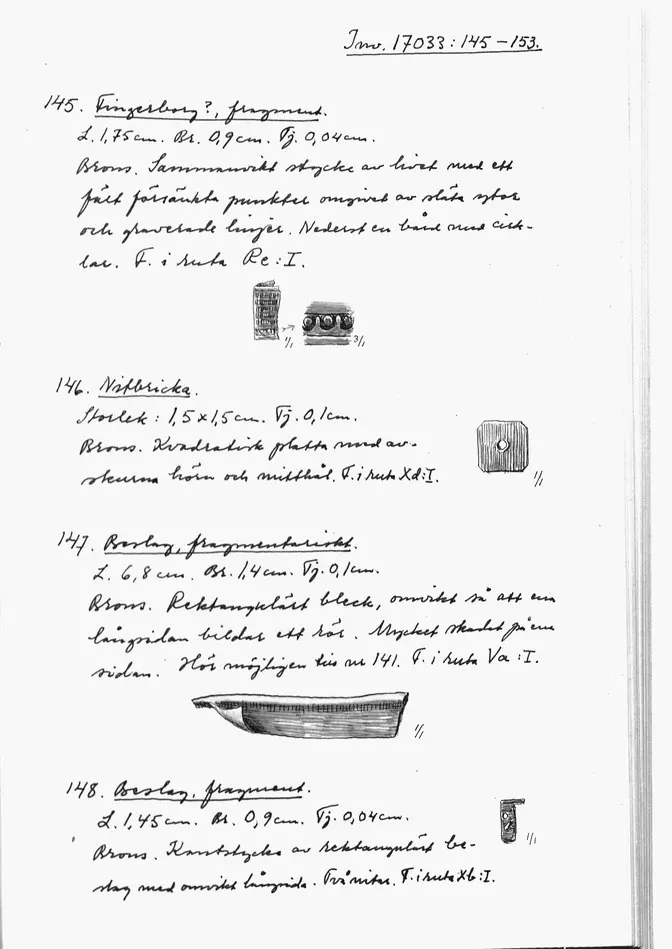 Inv. 17033:145–153.
145. Fingerborg?, fragment.
L. 1,75 cm. Br. 0,9 cm. Tj. 0,04 cm.
Brons. Sammanvikt stycke av livet med ett
fält försänkta punkter omgivet av släta ytor
och graverade linjer. Nederst en bård med cirk-
lar. F. i ruta Re:I.
1/1 3/1
146. Nitbricka.
Storlek: 1,5 x 1,5 cm. Tj. 0,1 cm.
Brons. Kvadratisk platta med av-
skurna hörn och mitthål. F. i ruta Xd:I.
1/1
147. Beslag, fragmentariskt.
L. 6,8 cm. Br. 1,4 cm. Tj. 0,1 cm.
Brons. Rektangulärt bleck, omvikt så att ena
långsidan bildar ett rör. Mycket skadat på ena
sidan. Hör möjligen till nr 141. F. i ruta Va:I.
1/1
148. Beslag, fragment.
L. 1,45 cm. Br. 0,9 cm. Tj. 0,04 cm.
Brons. Kantstycke av rektangulärt be-
slag med omvikt långsida. Två nitar. F. i ruta Xb:I.
1/1